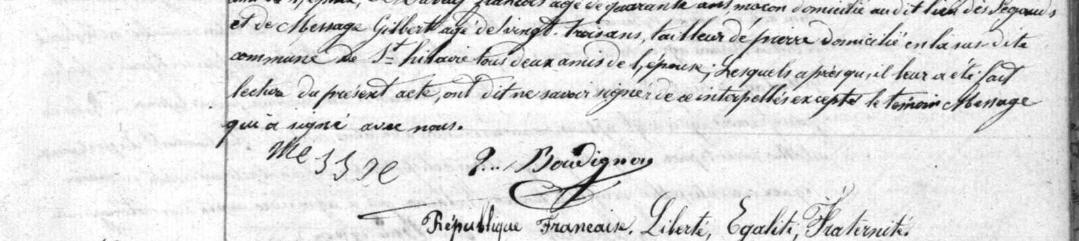 François agé de quarante ans maçon domicilié audit lieu des Segauds
et de Message Gilbert agé de vingt-trois ans, tailleur de pierre domicilié en la susdite
commune de St hilaire tous deux amis de l'épouse; Lesquels après qu'il leur a été fait
lecture du présent acte, ont dit ne savoir signer de ce interpellés excepté le temoin Message
qui a signé avec nous.
Boudignon
République Francaise. Liberté, Egalité, Fraternité.